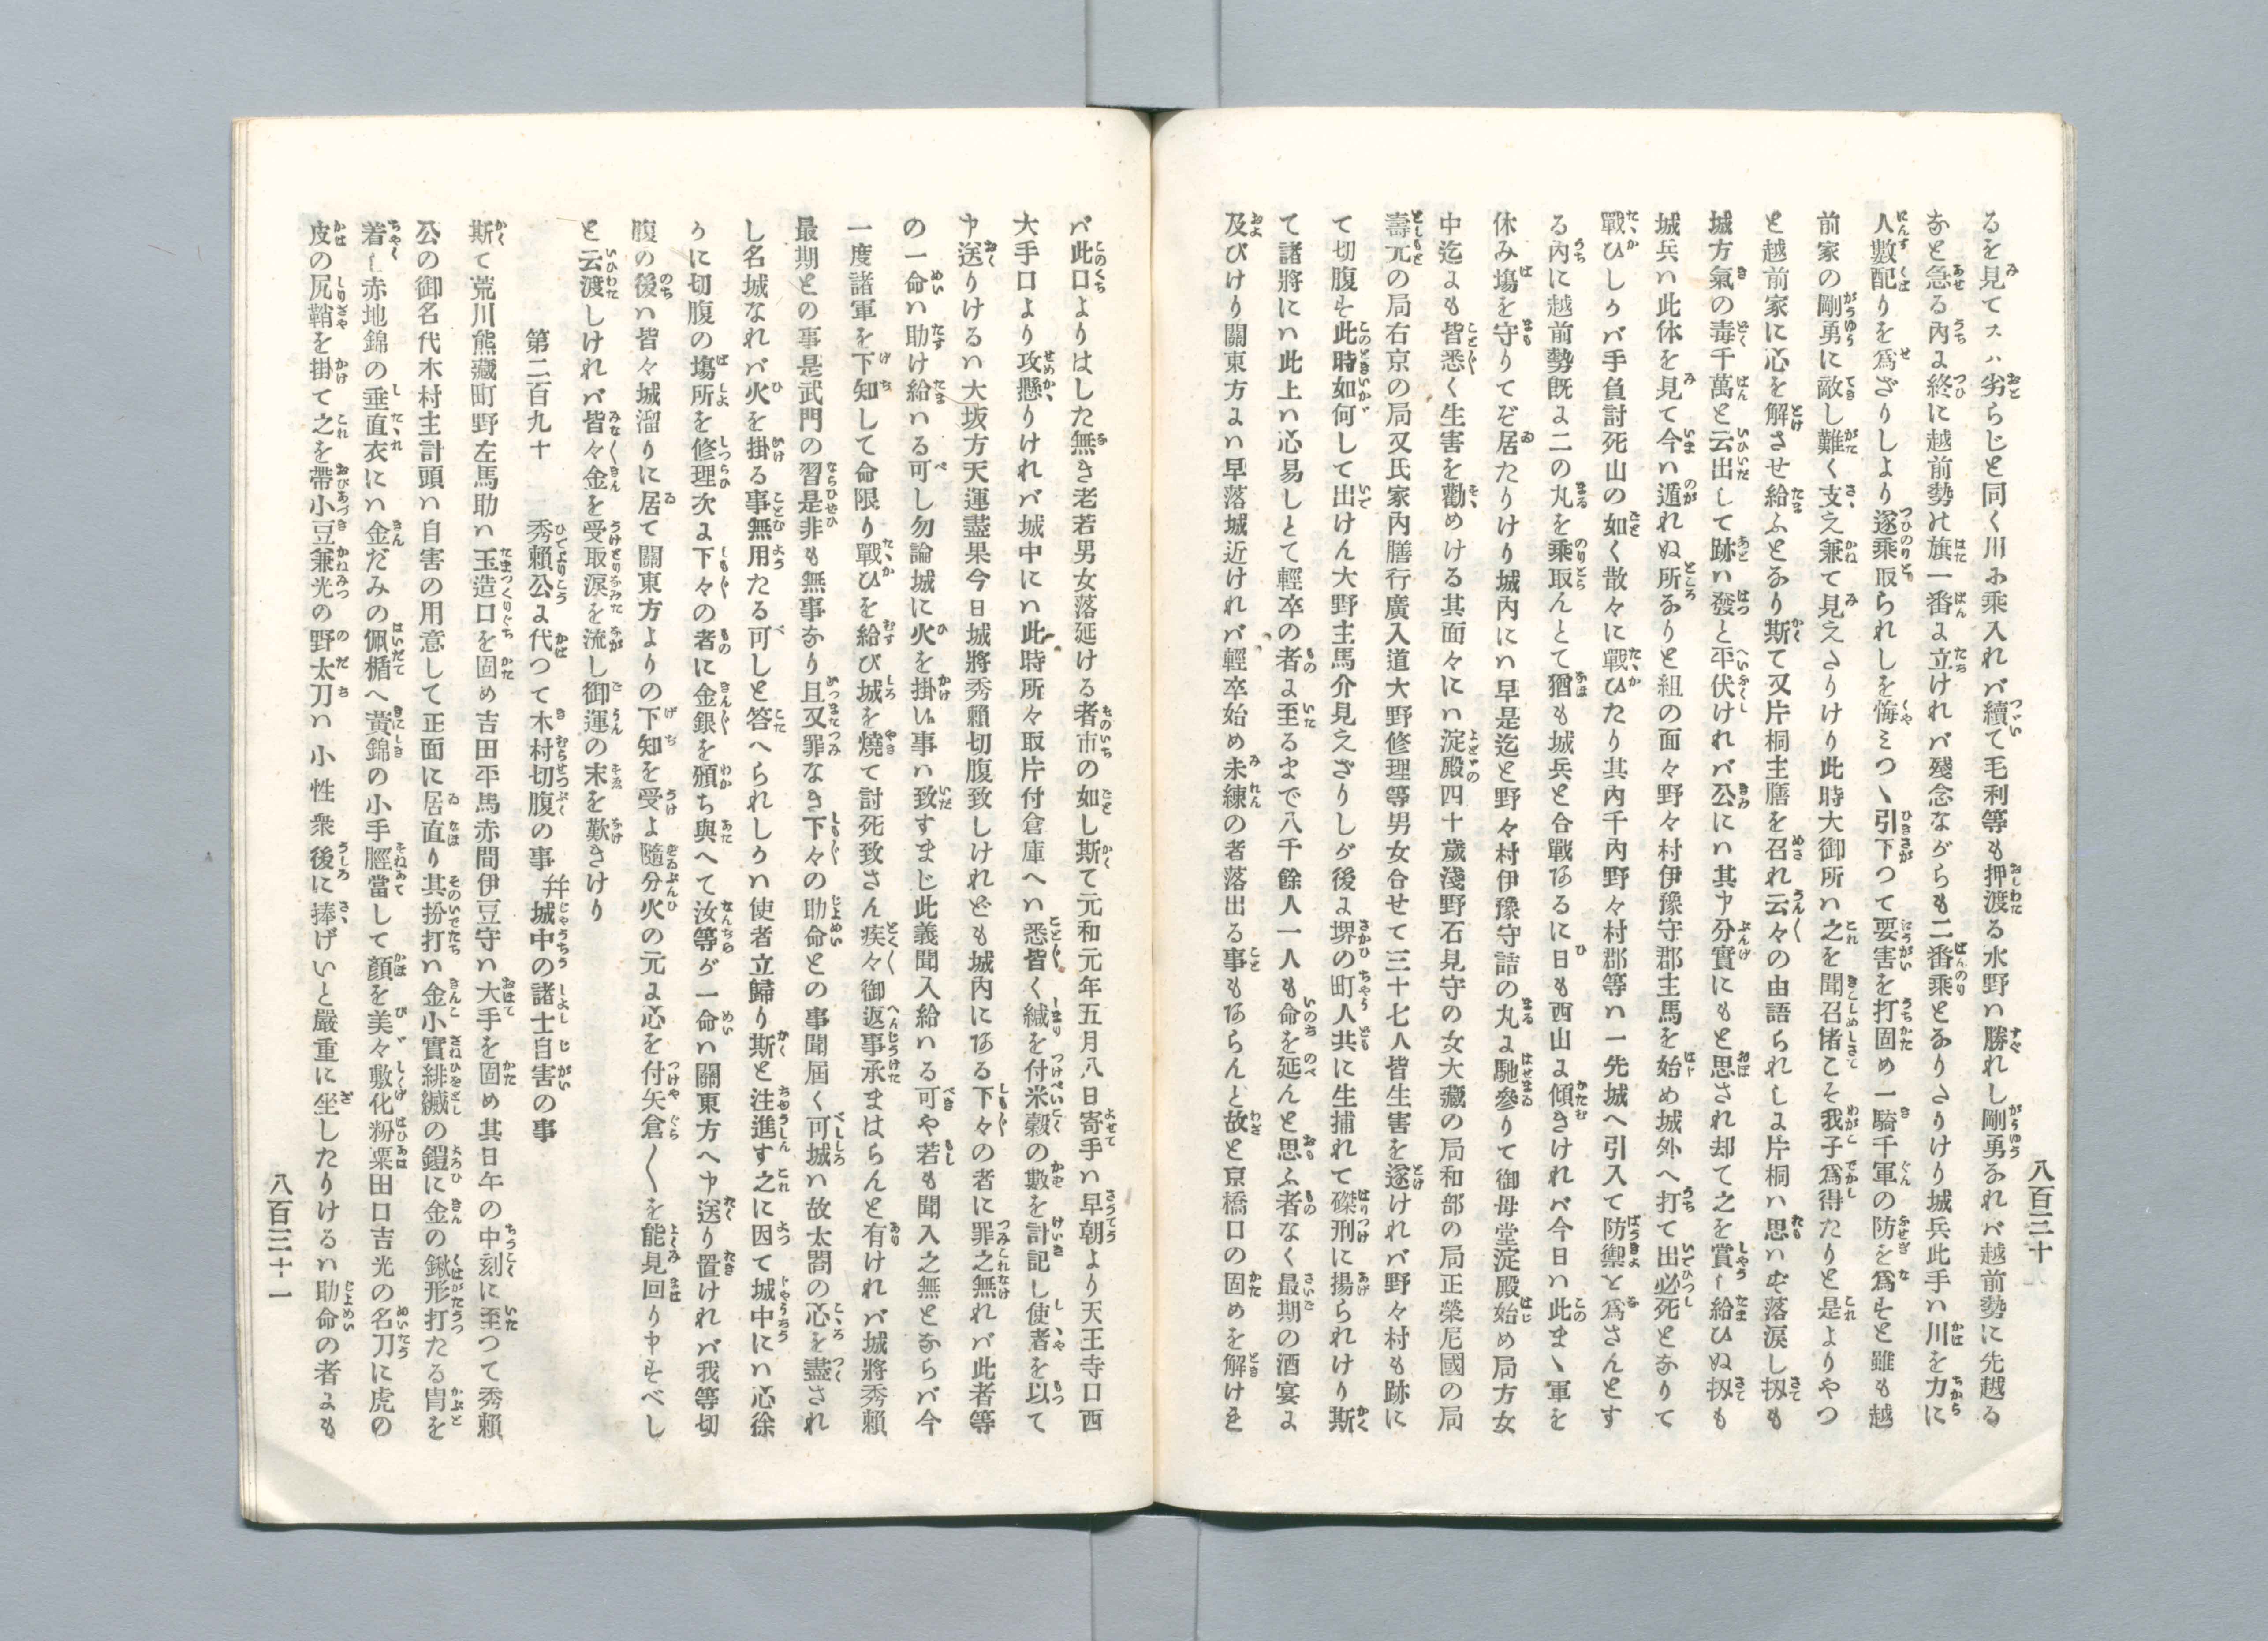 八百三十
るを見てスハ劣らじと同く川に乘入れバ續て毛利等も押渡る水野ハ勝れし剛勇なれバ越前勢に先越る
なと急る內に終に越前勢の旗一番に立けれバ殘念ながらも二番乘となりたりけり城兵此手ハ川を力に
人數配りを爲ざりしより遂乘取られしを悔ミつヽ引下つて要害を打固め一騎千軍の防を爲すと雖も越
前家の剛勇に敵し難く支え兼て見えたりけり此時大御所ハ之を聞召偖こそ我子爲得たりと是よりやつ
と越前家に心を解させ給ふとなり斯て又片桐主膳を召れ云々の由語られしに片桐ハ思ハず落淚し扨も
城方氣の毒千萬と云出して跡ハ發と平伏けれバ公にハ其申分實にもと思され却て之を賞し給ひぬ扨も
城兵ハ此体を見て今ハ遁れぬ所なりと組の面々野々村伊豫守郡主馬を始め城外へ打て出必死となりて
戰ひしかバ手負討死山の如く散々に戰ひたり其內千內野々村郡等ハ一先城へ引入て防禦と爲さんとす
る內に越前勢既に二の丸を乘取んとて猶も城兵と合戰あるに日も西山に傾きけれバ今日ハ此まヽ軍を
休み塲を守りてぞ居たりけり城內にハ早是迄と野々村伊豫守詰の丸に馳參りて御母堂淀殿始め局方女
中迄にも皆悉く生害を勸めける其面々にハ淀殿四十歲淺野石見守の女大藏の局和部の局正榮尼國の局
壽元の局右京の局又氏家內膳行廣入道大野修理等男女合せて三十七人皆生害を遂けれバ野々村も跡に
て切腹す此時如何して出けん大野主馬介見えざりしが後に堺の町人共に生捕れて磔刑に揚られけり斯
て諸將にハ此上ハ心易しとて輕卒の者に至るまで八千餘人一人も命を延んと思ふ者なく最期の酒宴に
及びけり關東方にハ早落城近けれバ輕卒始め未練の者落出る事もあらんと故と京橋口の固めを解けを
バ此口よりはした無き老若男女落延ける者市の如し斯て元和元年五月八日寄手ハ早朝より天王寺口西
大手口より攻懸りけれバ城中にハ此時所々取片付倉庫へハ悉皆く緘を付米穀の數を計記し使者を以て
申送りけるハ大坂方天運盡果今日城將秀賴切腹致しけれども城內にある下々の者に罪之無れバ此者等
の一命ハ助け給ハる可し勿論城に火を掛い事ハ致すまじ此義聞入給ハる可や若も聞入之無となら​バ今
一度諸軍を下知して命限り戰ひを給び城を燒て討死致さん疾々御返事承まはらんと有けれバ城將秀賴
最期との事是武門の習是非も無事なり且又罪なき下々の助命との事聞屆く可城ハ故太閤の心を盡され
し名城なれバ火を掛る事無用たる可しと答へられしかハ使者立歸り斯と注進す之に因て城中にハ心徐
かに切腹の塲所を修理次に下々の者に金銀を頒ち與へて汝等が一命ハ關東方へ申送り置けれバ我等切
腹の後ハ皆々城溜りに居て關東方よりの下知を受よ隨分火の元に心を付矢倉〱を能見回り申すべし
と云渡しけれバ皆々金を受取淚を流し御運の末を歎きけり
第二百九十　秀賴公に代つて木村切腹の事　幷城中の諸士自害の事
斯て荒川熊藏町野左馬助ハ玉造口を固め吉田平馬赤間伊豆守ハ大手を固め其日午の中刻に至つて秀賴
公の御名代木村主計頭ハ自害の用意して正面に居直り其扮打ハ金小實緋縅の鎧に金の鍬形打たる冑を
着し赤地錦の垂直衣にハ金だみの佩楯へ黃錦の小手脛當して顏を美々敷化粉粟田口吉光の名刀に虎の
皮の尻鞘を掛て之を帶小豆兼光の野太刀ハ小性衆後に捧げいと嚴重に坐したりけるハ助命の者にも
八百三十一